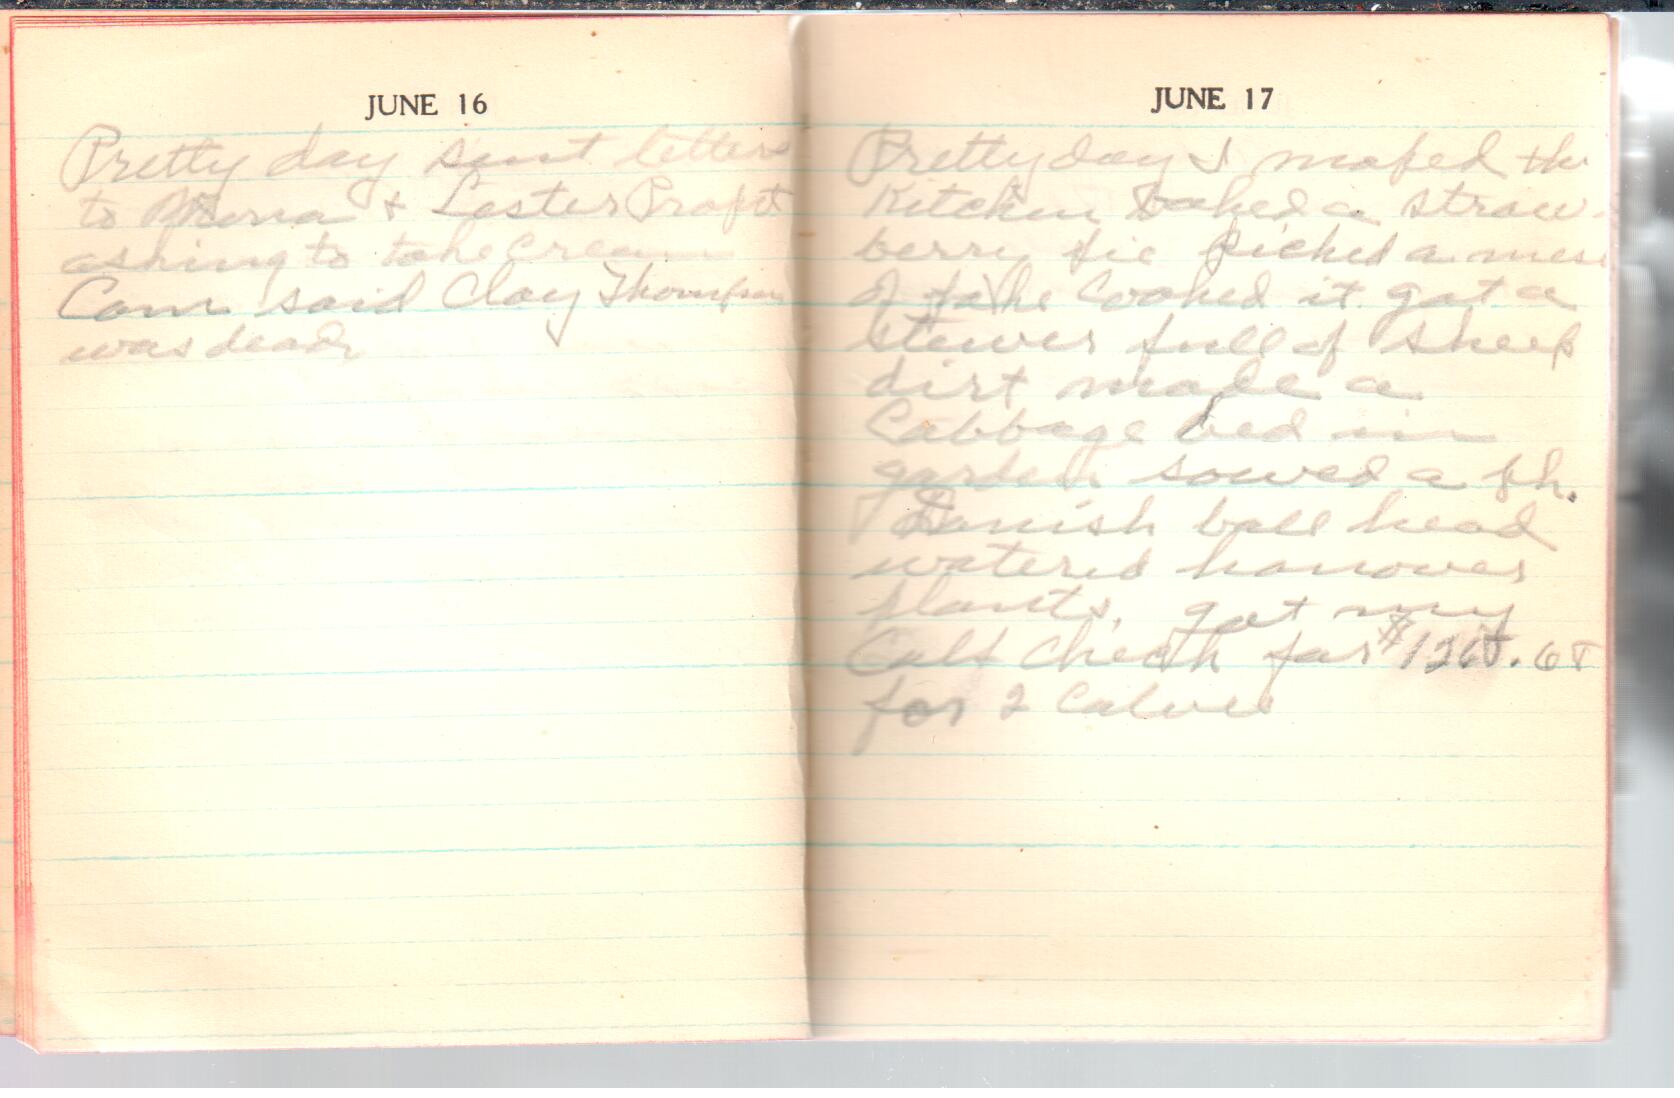 JUNE 16
Pretty day sent letters
to Mona & Lester Proffit
asking to take cream
Com said Clay Thompson
was dead
JUNE 17
Pretty day I moped the
Kitchen baked a straw-
berry pie picked a mess
of Cooked it got a
stewer full of sheep
dirt made a
Cabbage bed in
garden sowed a ph.
Danish ball head
watered hanover
plants, got my
Calf check for
for 2 Calves